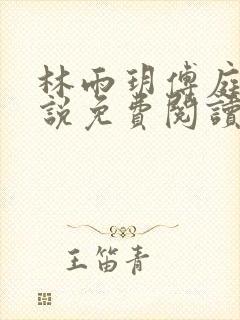 林雨玥傅庭
說免費閱讀
王笛青